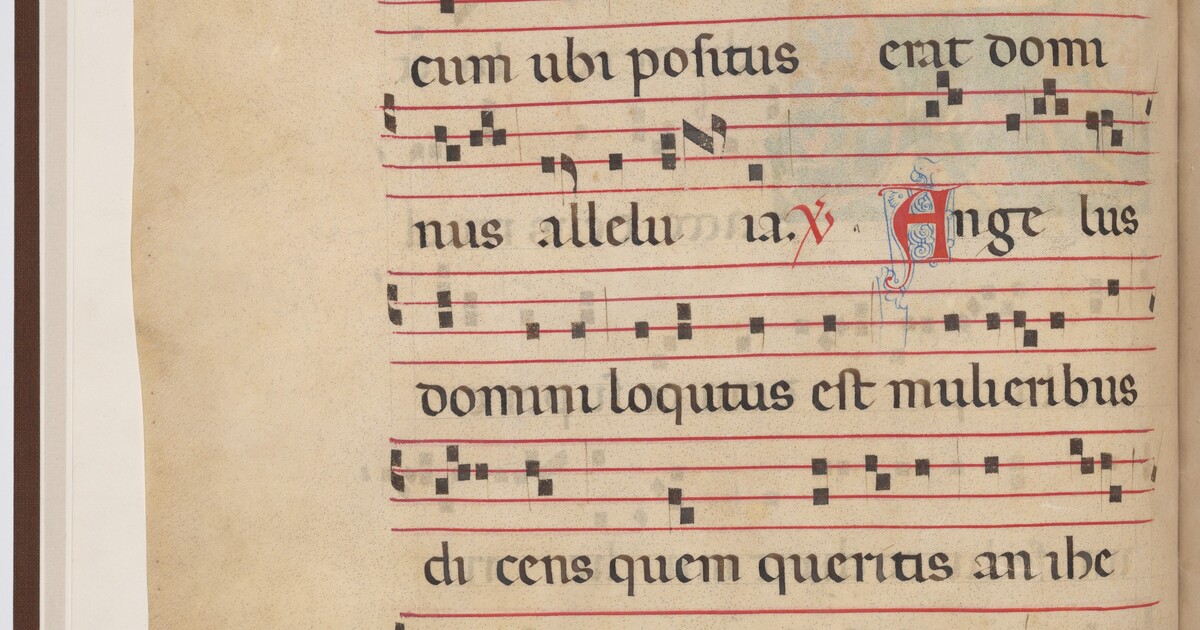 cum ubi positus erat domi
nus allelu ia. V. Ange lus
domini loqutus est mulieribus
di cens quem queritis an ihe